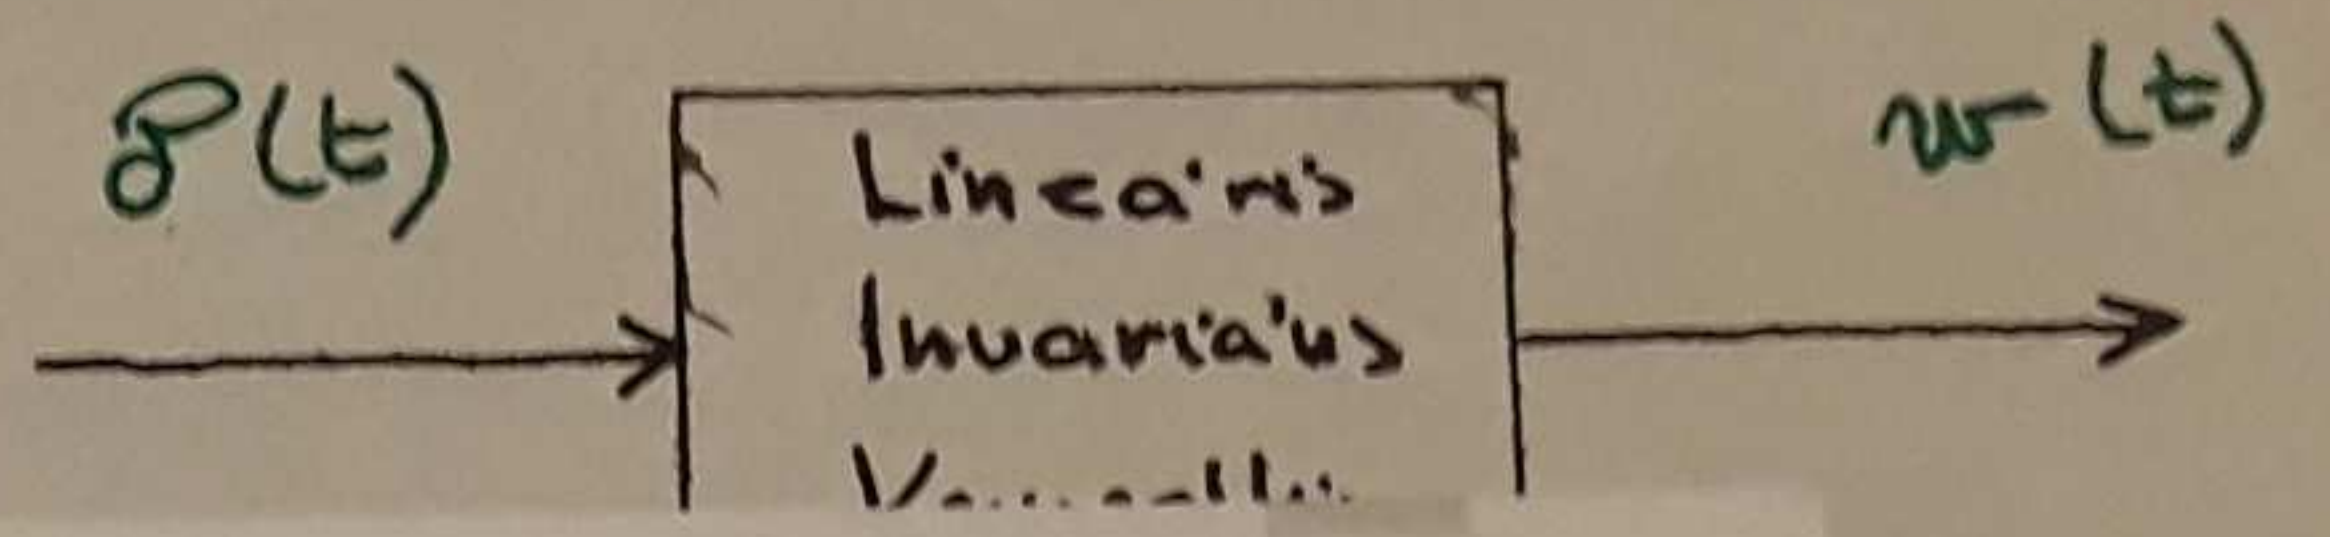 δ(t)
w(t)
Lineáris
Invariáns